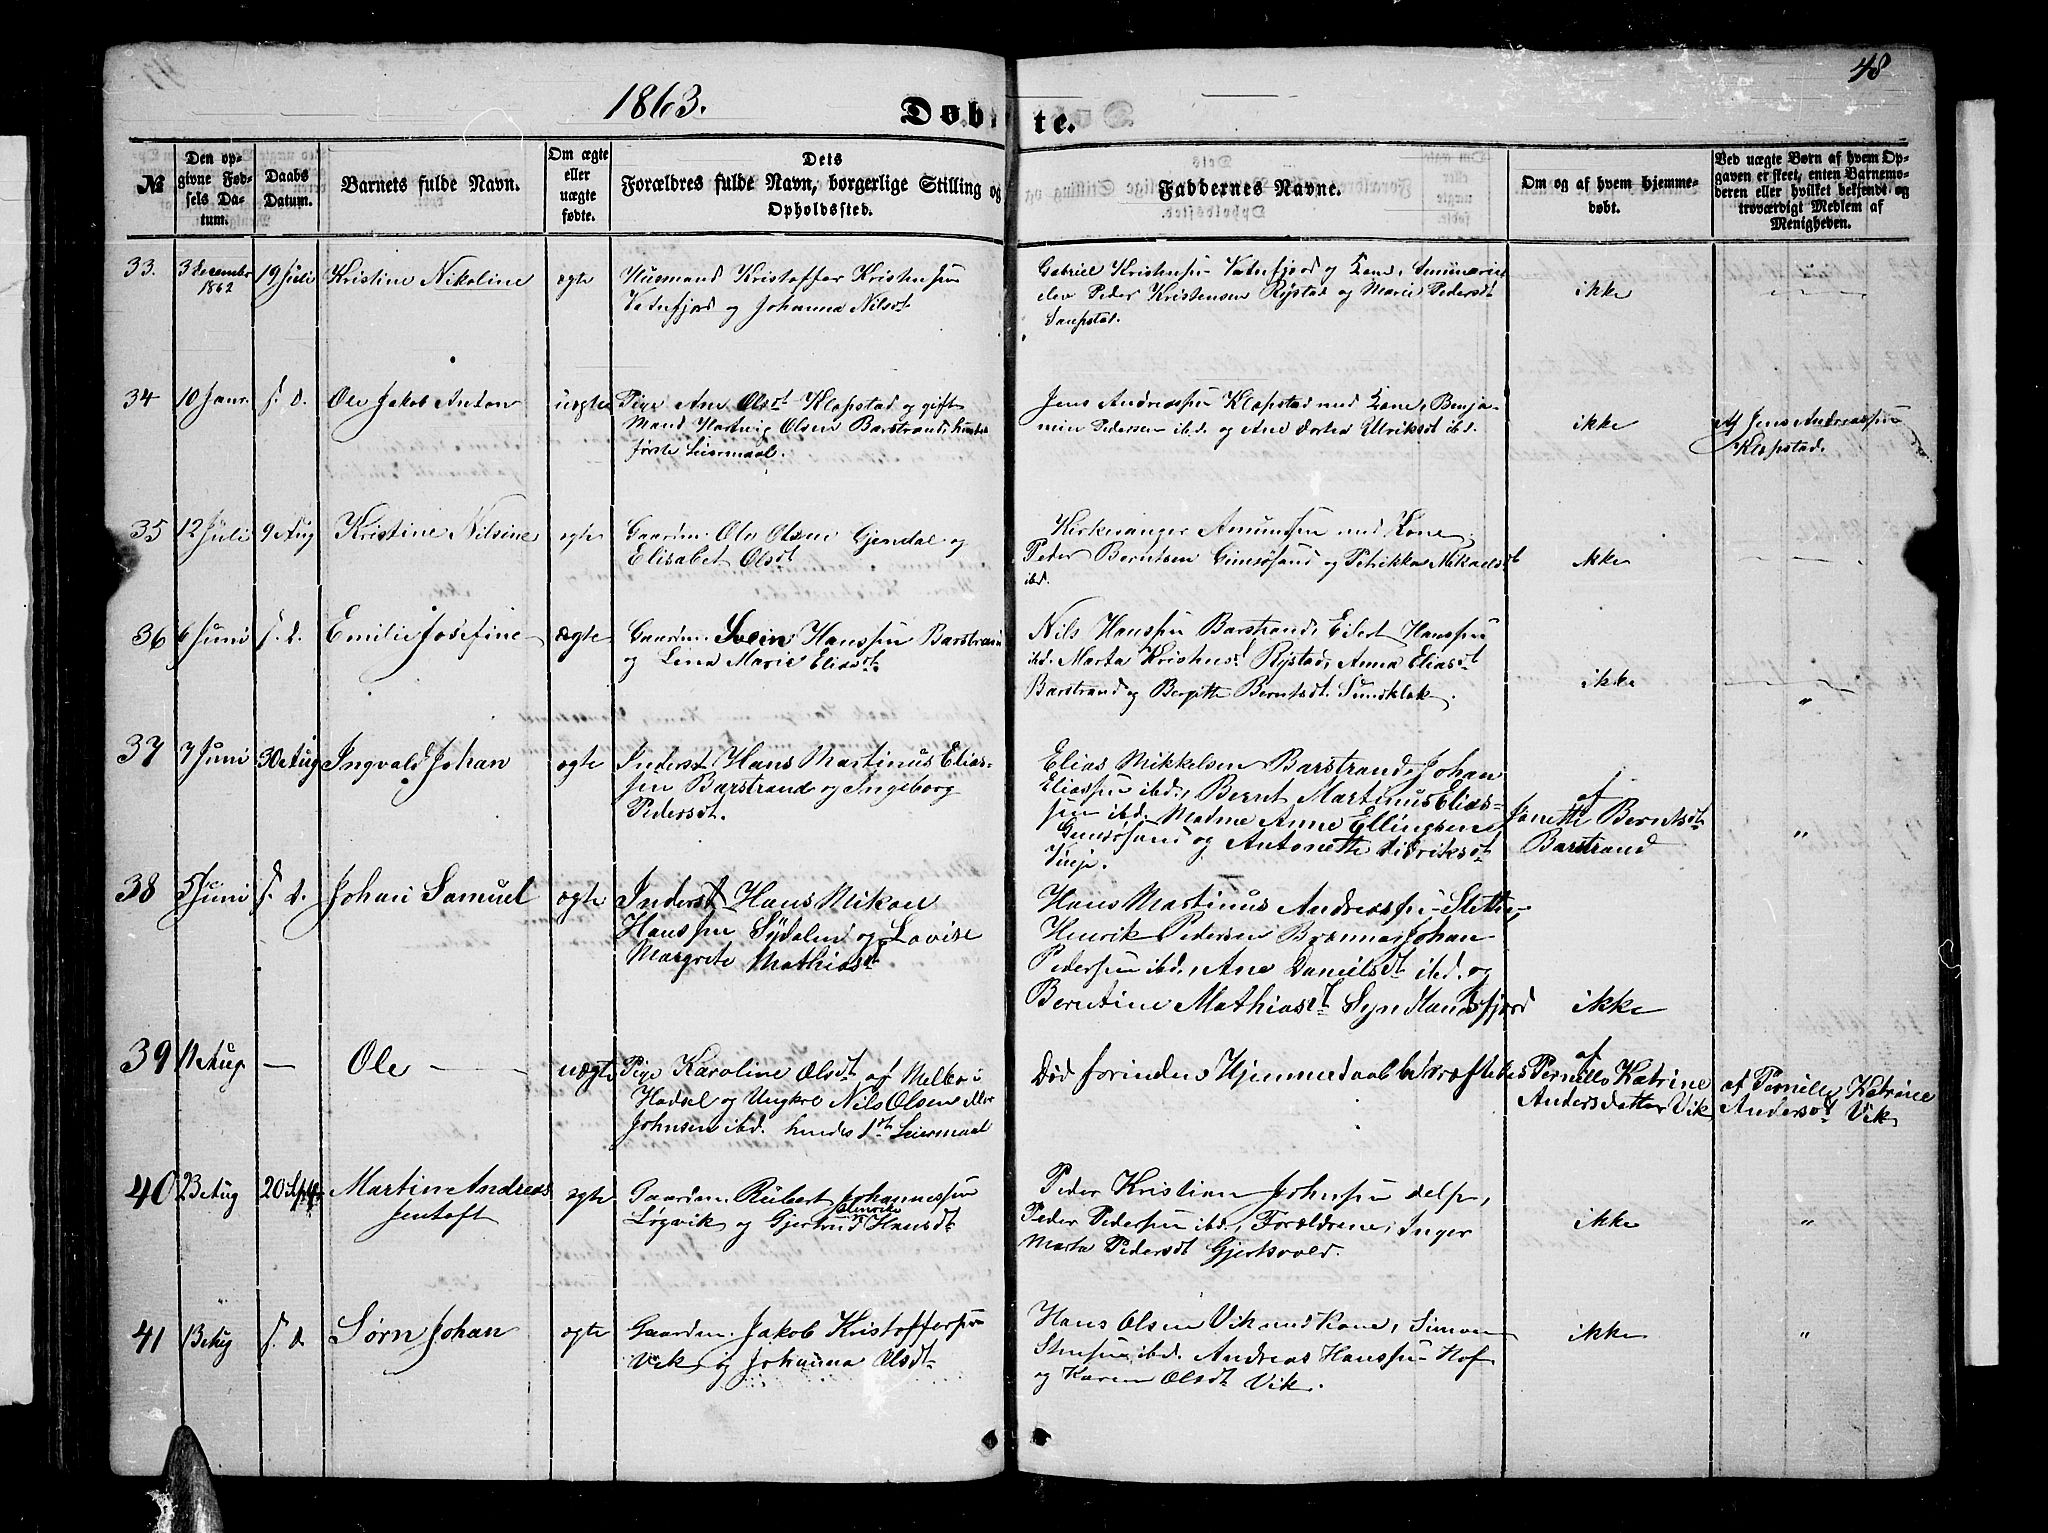 48
1863.
Døbte.
№
Den op-
givne Fød-
sels Da-
tum.
Daabs
Datum.
Barnets fulde Navn.
Om ægte
eller
uægte
fødte.
Dets
Forældres fulde Navn, borgerlige Stilling og
Opholdssted.
Faddernes Navne.
Om og af hvem hjemme-
døbt.
Ved uægte Børn af hvem Op-
gaven er skeet, enten Barnemo-
deren eller hvilket bekjendt og
troværdigt Medlem af
Menigheden.
33. 3 December
1862
19 Juli
Kristine Nikoline
ægte
Husmand Kristoffer Kristensen
Vatnfjord og Johanna Nilsdt
Gabriel Kristensen Vatnfjord og Kone, Seminarie
elev Peder Kristensen Rystad og Marie Pedersdt
Saupstad.
ikke
34 10 Janr. s. d.
Ole Jakob Anton
uægte
Pige Ane Olsdt Klopstad og gift
Mand Hartvig Olsen Barstrand, hendes
første Leiermaal.
Jens Andreassen Klopstad med Kone, Benja-
min Pedersen ibd. og Ane Dortea Ulriksdt ibd.
ikke
Af Jens Andreassen
Klopstad.
35 12 Juli 9 Aug
Kristine Nilsine
ægte
Gaardm. Ole Olsen Gjendal og
Elisabet Olsdt
Kirkesanger Amundsen med Kone,
Peder Berntsen Gimsøsand og Petrikka Mikaelsdt
ibd.
ikke
36 6 Juni s. d.
Emilie Josefine
ægte
Gaardm. Svein Hanssen Barstrand
og Lina Marie Eliasdt.
Nils Hanssen Barstrand, Eilert Hanssen
ibd. Marta Kristensdt Rystad, Anna Eliasdt
Barstrand og Bergitte Berntsdt. Sundklak.
ikke
"
37 7 Juni 30 Aug
Ingvald Johan
ægte
Inderst Hans Martinus Elias-
sen Barstrand og Ingeborg
Pedersdt.
Elias Mikkelsen Barstrand, Johan
Eliassen ibd., Bernt Martinus Elias-
sen ibd. Madme Anne Ellingsen
Gimsøsand og Antonette Didriksdt
Vinje.
af
Janette Berntsdt
Barstrand
"
38 5 Juni s. d.
Johan Samuel
ægte
Inderst Hans Mikal
Hanssen Sydalen og Lovise
Margrete Mathiasdt
Hans Martinus Andreassen Slette,
Henrik Pedersen Brenna, Johan
Pedersen ibd., Ane Danielsdt ibd. og
Berntine Mathiasdt Syndlandsfjord
ikke
39 11 Aug —
Ole
uægte
Pige Karoline Olsdt af Melbo i
Hadsel og Ungkrl Nils Olsen eller
Johnsen ibd. hendes 1ste Leiermaal
Død forinden Hjemmedaab bekræftedes
af
Pernille Katrine
Andersdatter Vik
af Pernille Katrine
Andersdt Vik
40 23 Aug 20 Septbr
Martin Andreas
Jentoft
ægte
Gaardm. Rubert Johannessen
Løgvik og Gjertrud Henrike Hansdt
Peder Kristian Johnsen delp,
Peder Pedersen ibd., Forældrene, Inger
Marta Pedersdt Gjerksvold.
ikke
"
41 13 Aug s. d
Sørn Johan
ægte
Gaardm. Jakob Kristoffersen
Vik og Johanna Olsdt
Hans Olsen Vik med Kone, Simon
Stensen ibd. Andreas Hanssen Hof
og Karen Olsdt Vik.
ikke
"